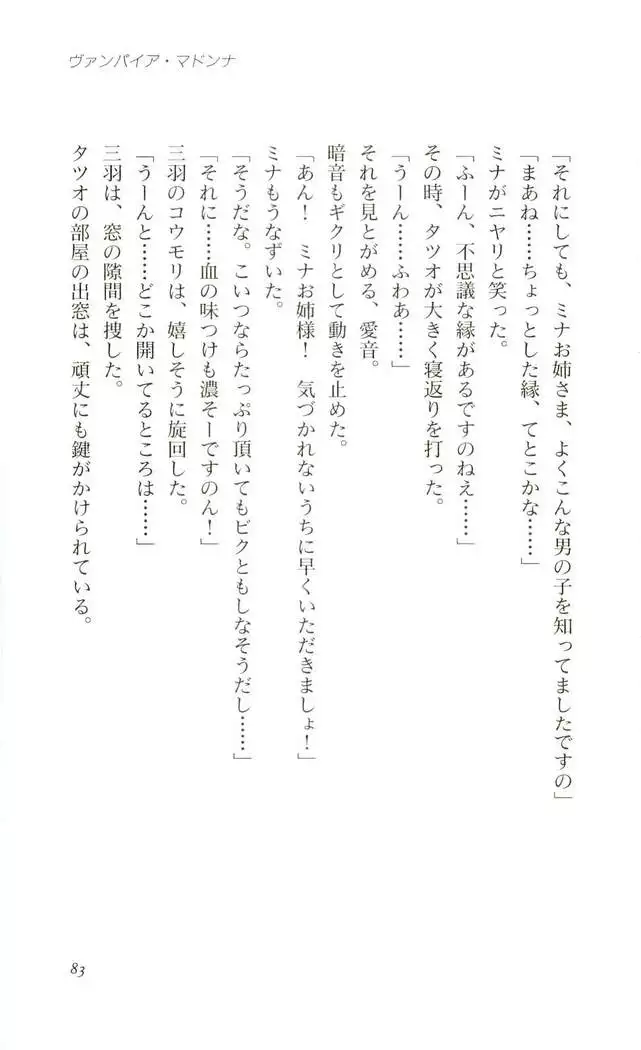 ヴァンパイア・マドンナ
「それにしても、ミナお姉さま、よくこんな男の子を知ってましたですの」
「まあね……ちょっとした縁、てとこかな……」
ミナがニヤリと笑った。
「ふーん、不思議な縁があるですのねえ……」
その時、タツオが大きく寝返りを打った。
「うーん……ふわあ……」
それを見とがめる、愛音。
暗音もギクリとして動きを止めた。
「あん！　ミナお姉様！　気づかれないうちに早くいただきましょ！」
ミナもうなずいた。
「そうだな。こいつならたっぷり頂いてもビクともしなそうだし……」
「それに……血の味つけも濃そーですのん！」
三羽のコウモリは、嬉しそうに旋回した。
「うーんと……どこか開いてるところは……」
三羽は、窓の隙間を捜した。
タツオの部屋の出窓は、頑丈にも鍵がかけられている。
83